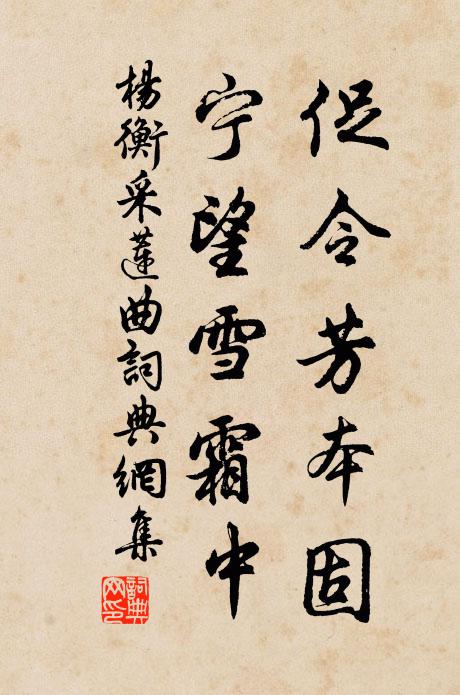 促令芳本固
宁望雪霜中
楊衡采蓮曲詞典網集
詞典網印